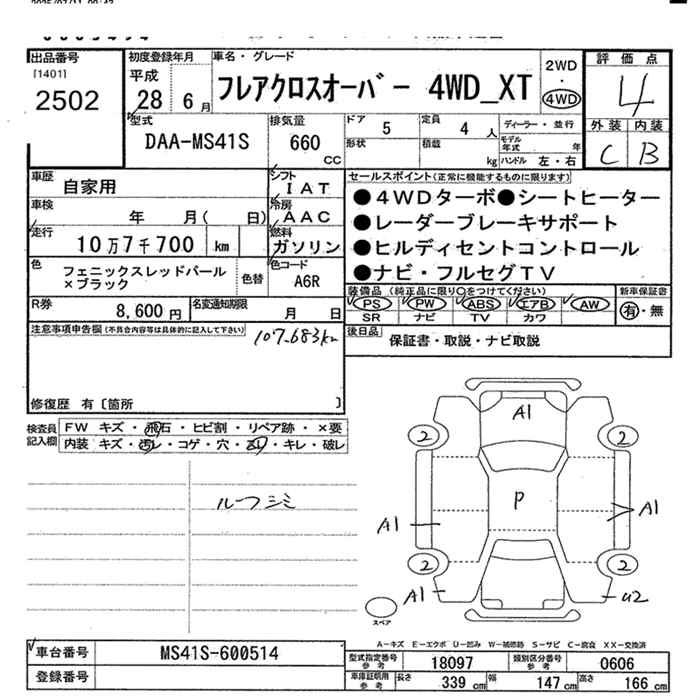 出品番号
[1401]
2502
初度登録年月
平成
28 6月
車名・グレード
フレアクロスオーバー 4WD_XT
2WD
・
4WD
評価点
4
外装 内装
C B
型式
DAA-MS41S
排気量
660
CC
ドア 5
定員 4 人
ディーラー・並行
形状
積載 kg
モデル年式 年
ハンドル 左・右
車歴
自家用
シフト
IAT
車検
年 月( 日)
冷房
AAC
走行
10万7千700 km
燃料
ガソリン
色
フェニックスレッドパール
×ブラック
色替
色コード
A6R
R券
8,600 円
名変通知期限
月 日
セールスポイント(正常に機能するものに限ります)
●4WDターボ●シートヒーター
●レーダーブレーキサポート
●ヒルディセントコントロール
●ナビ・フルセグTV
装備品 (純正品に限り○をつけてください)
新車保証書
PS PW ABS エアB AW
有・無
SR ナビ TV カワ
後日品
保証書・取説・ナビ取説
注意事項申告欄(不具合内容等は具体的に記入して下さい)
107,683km
修復歴 有〔箇所 〕
検査員
記入欄
FW キズ・飛石・ヒビ割・リペア跡・×要
内装 キズ・汚レ・コゲ・穴・凹レ・キレ・破レ
ルーフシミ
A1
2 2
P
A1 A1
2 2
A1 U2
スペア
A-キズ E-エクボ U-凹み W-補修跡 S-サビ C-腐食 XX-交換済
車台番号
MS41S-600514
登録番号
型式指定番号
参考
18097
類別区分番号
参考
0606
車庫証明用
参考
長さ 339 cm
幅 147 cm
高さ 166 cm